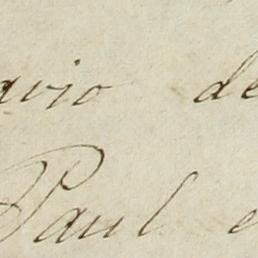 avio de
Paul e